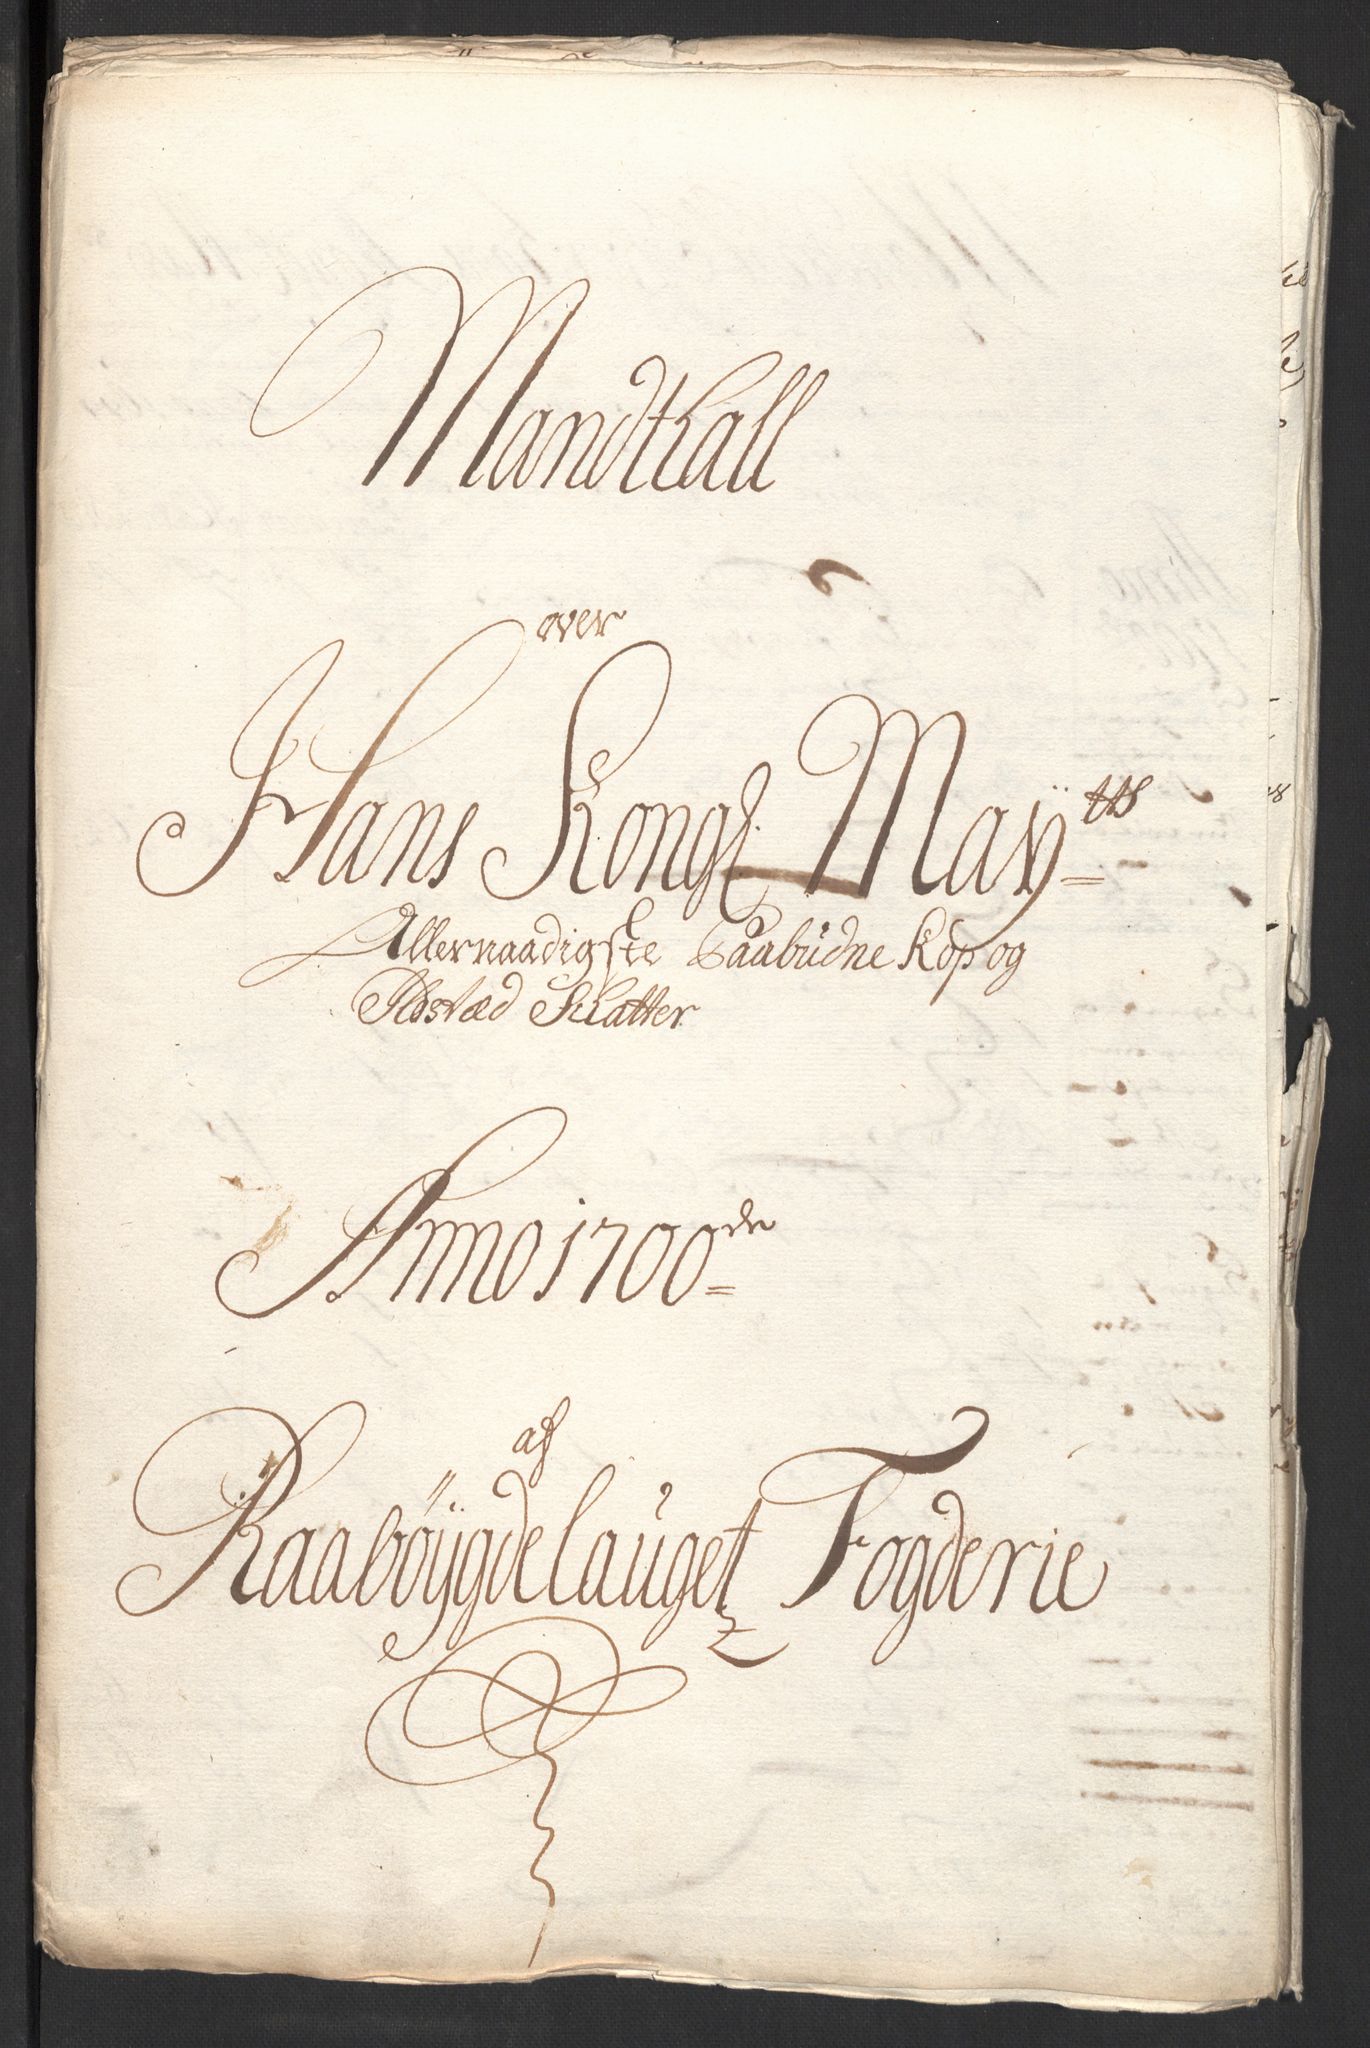 Mandtall
over
Hans Kongl. Maÿtts
Allernaadigste Paabüdne Kop og
Ildstæd Skatter
Anno 1700de
af
Raaböÿgdelauget Fogderie